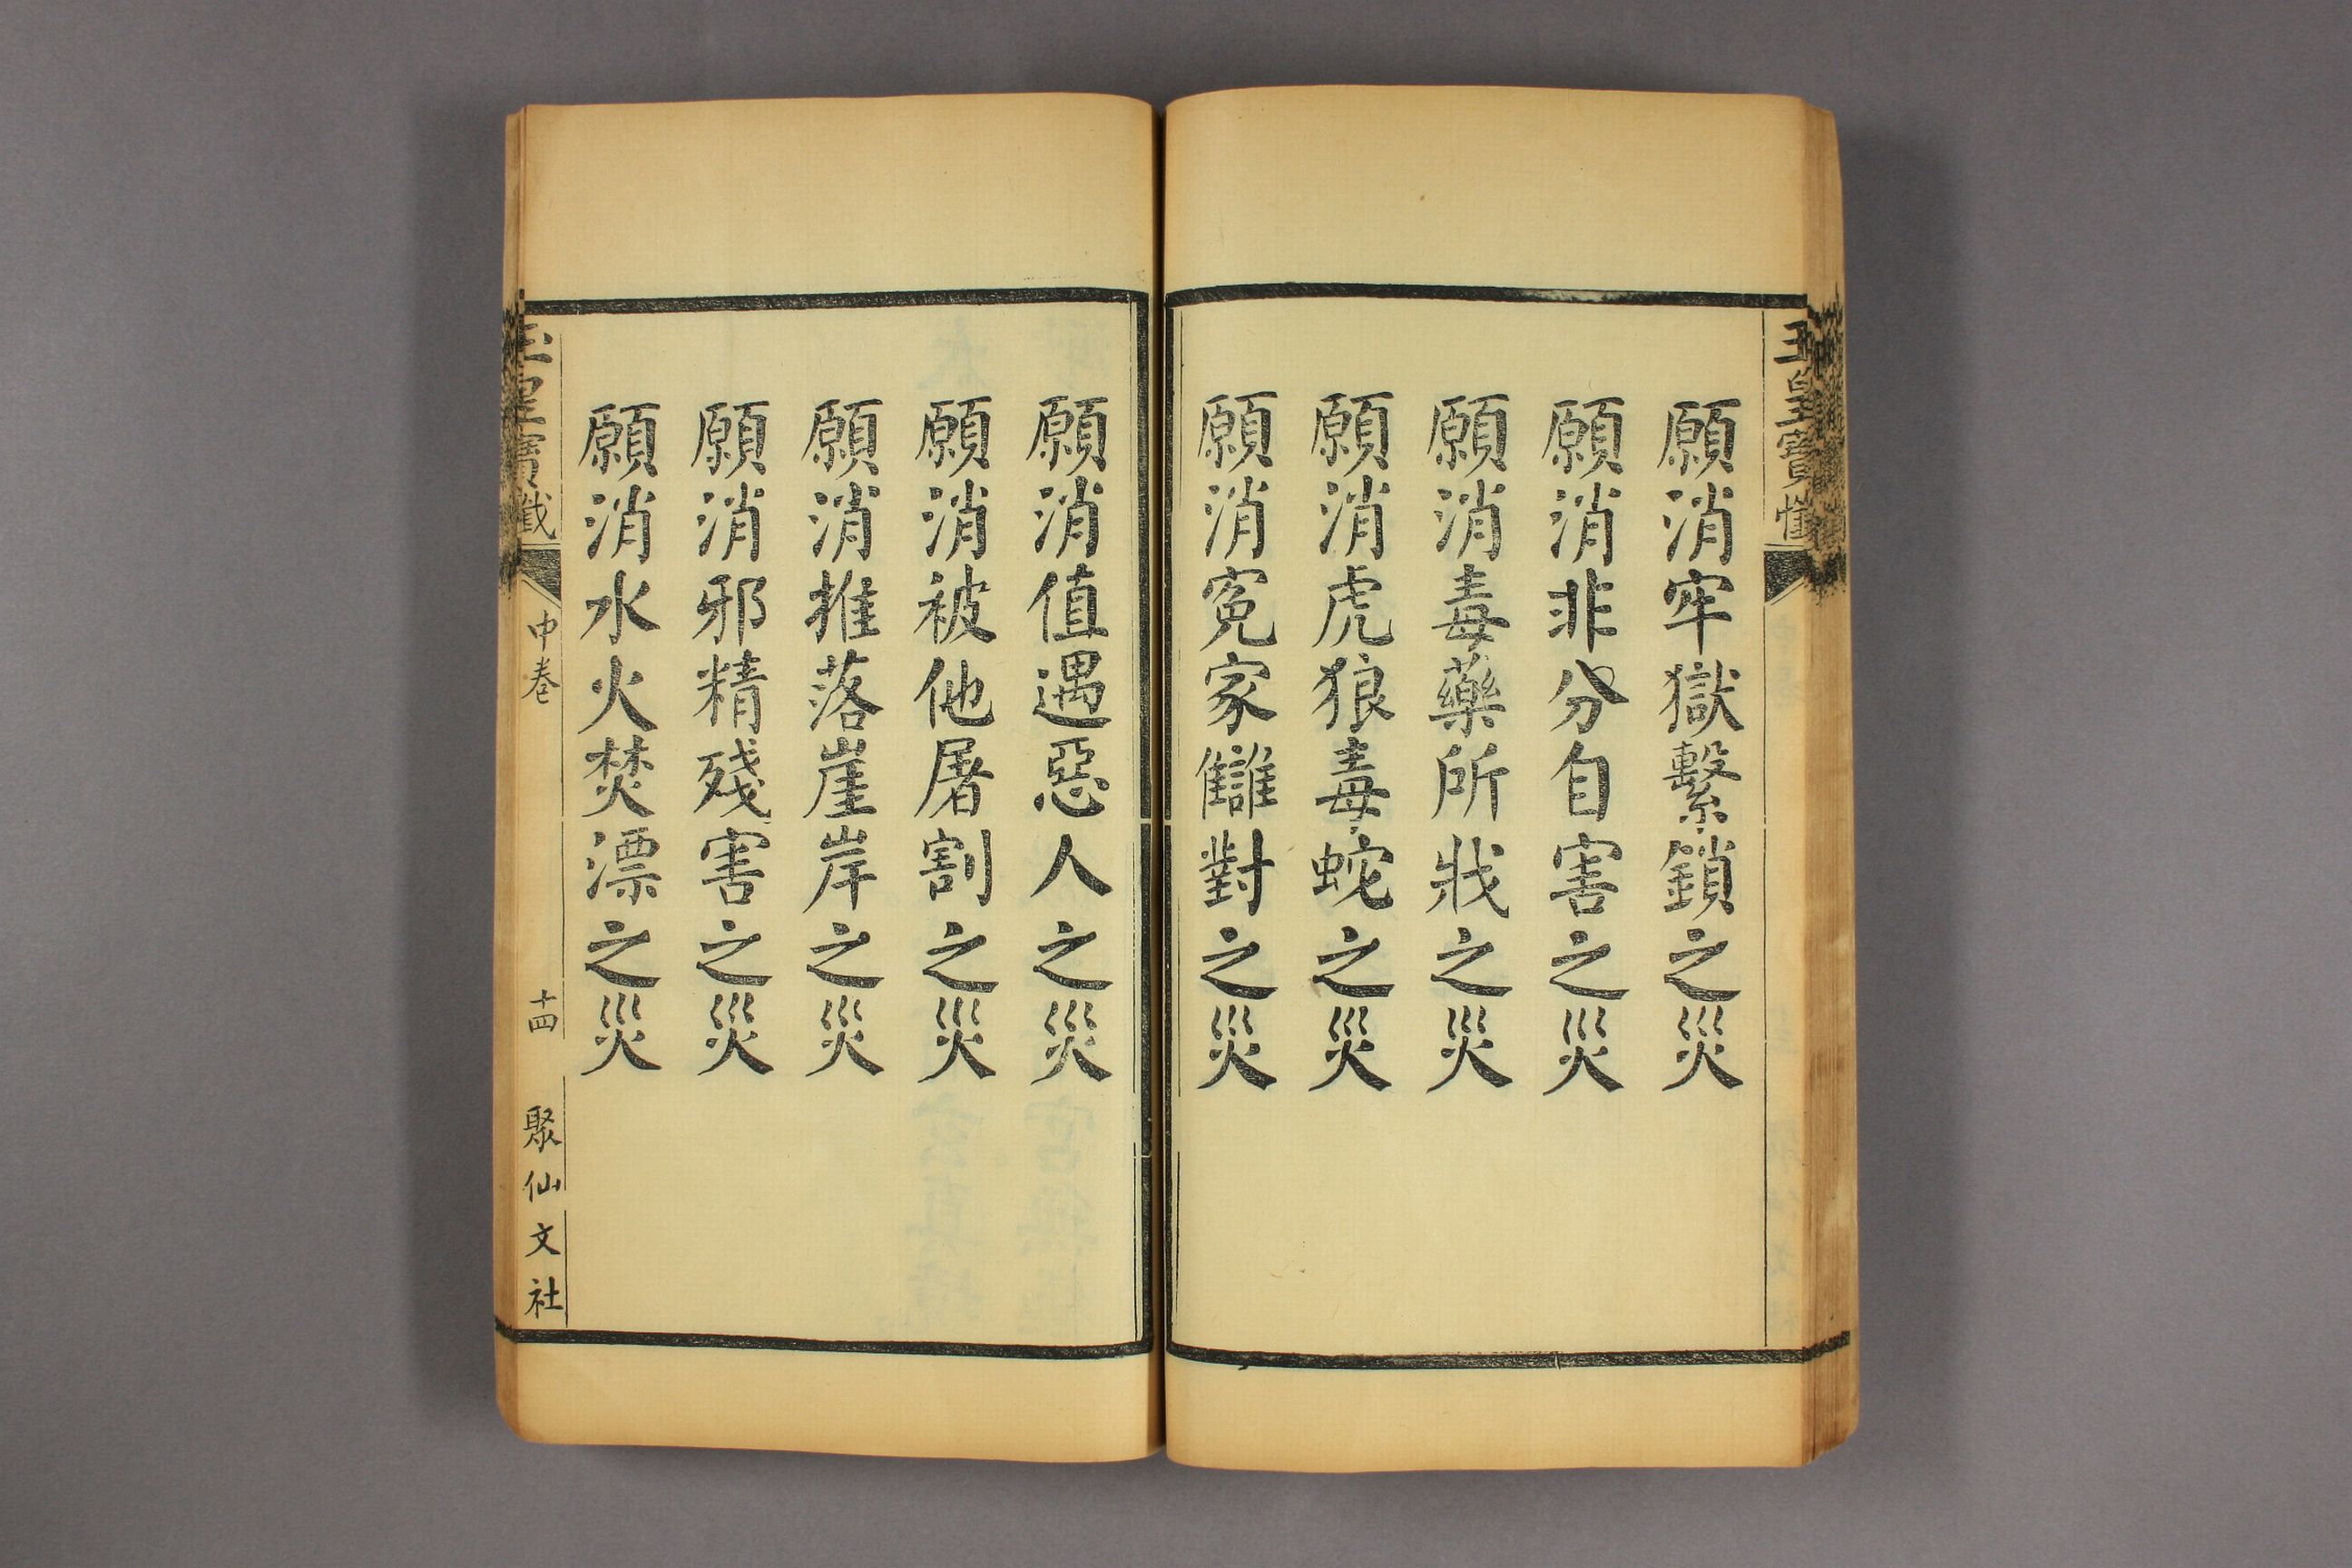 玉皇寶懺
願消牢獄繫鎖之災
願消非分自害之災
願消毒藥所戕之災
願消虎狼毒蛇之災
願消冤家讎對之災
願消值遇惡人之災
願消被他屠割之災
願消推落崖岸之災
願消邪精殘害之災
願消水火焚漂之災
玉皇寶懺
中卷
十四
聚仙文社